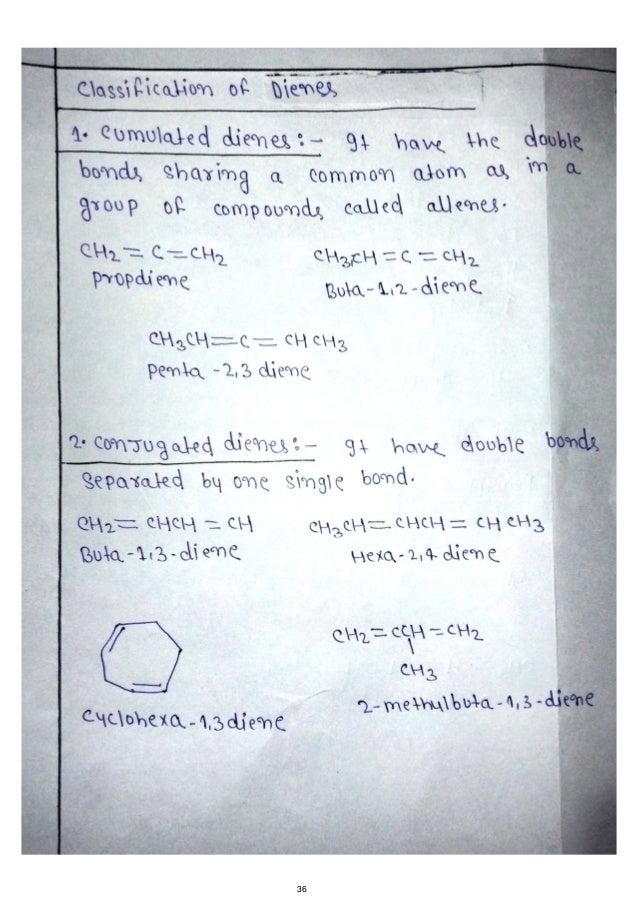 Classification of Dienes
1. Cumulated dienes :- It have the double
bonds sharing a common atom as in a
group of compounds called allenes.
CH2 = C = CH2 CH3CH = C = CH2
propdiene Buta-1,2-diene
CH3CH = C = CHCH3
penta -2,3 diene
2. Conjugated dienes :- It have double bonds
separated by one single bond.
CH2 = CHCH = CH CH3CH = CHCH = CHCH3
Buta-1,3-diene Hexa-2,4 diene
CH2 = CCH = CH2
CH3
cyclohexa-1,3 diene 2-methylbuta-1,3-diene
36